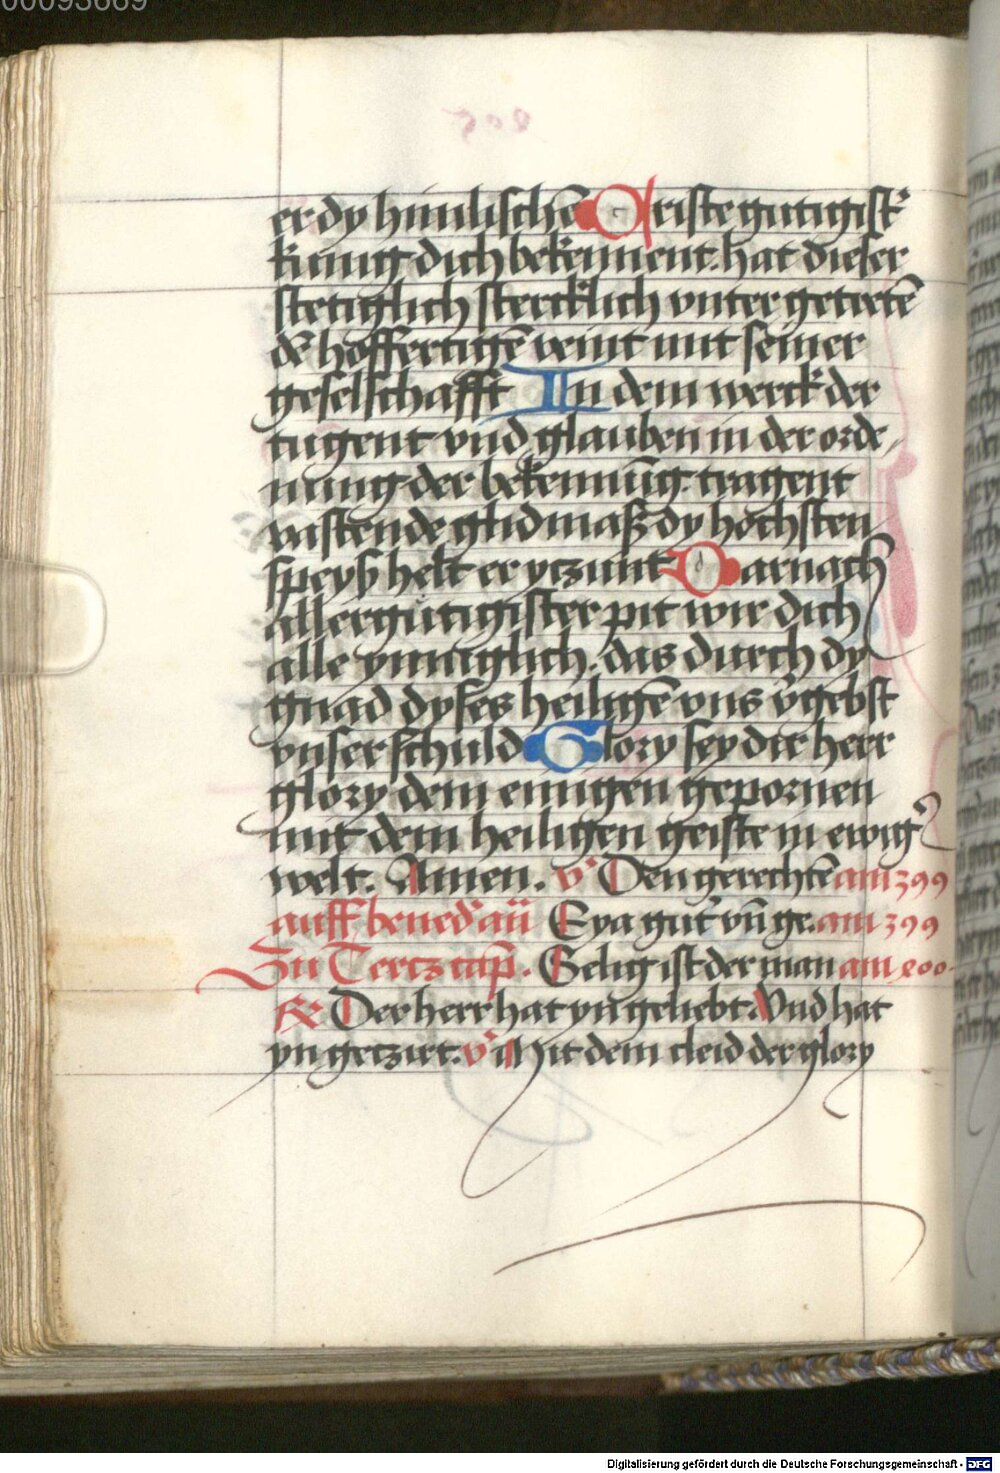 00093669
er dy himlischē Criste gutigist᷑
kunig dich bekennent. hat dieser
stetiglich stercklich vnter getretē
dē hoffertigē veint mit seiner
geselschafft In dem werck der
tugent vnd glauben in der orde,
nung der bekennūg. tragent
vastende glidmaß dy hochsten
speyß helt er yczunt Darnach
allergutigister pit wir dich
alle ynniglich. das durch dy
gnad dyses heiligē vns v᷑gebst
vnser schuld Glory sey dir herr
glory dem einigen gepornen
mit dem heiligen geiste in ewig᷑
welt. Amen. v᷑ Den gerechtē am 399
auff bened᷑ añ Eya gut᷑ vñ ge. am 399
Zu Tercz cap̄. Selig ist der man am 400.
R Der herr hat yn geliebt. Vnd hat
yn gecziret. v᷑ Mit dem cleid der glory
Digitalisierung gefördert durch die Deutsche Forschungsgemeinschaft - DFG